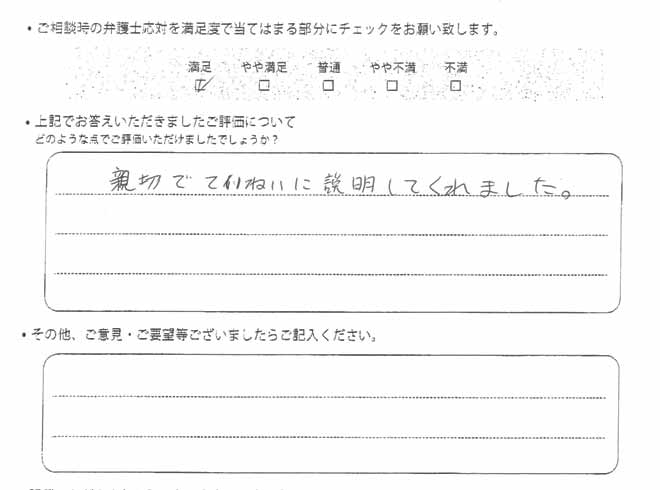 ・ご相談時の弁護士応対を満足度で当てはまる部分にチェックをお願い致します。
満足 やや満足 普通 やや不満 不満
☑ □ □ □ □
・上記でお答えいただきましたご評価について
どのような点でご評価いただけましたでしょうか？
親切でていねいに説明してくれました。
・その他、ご意見・ご要望等ございましたらご記入ください。